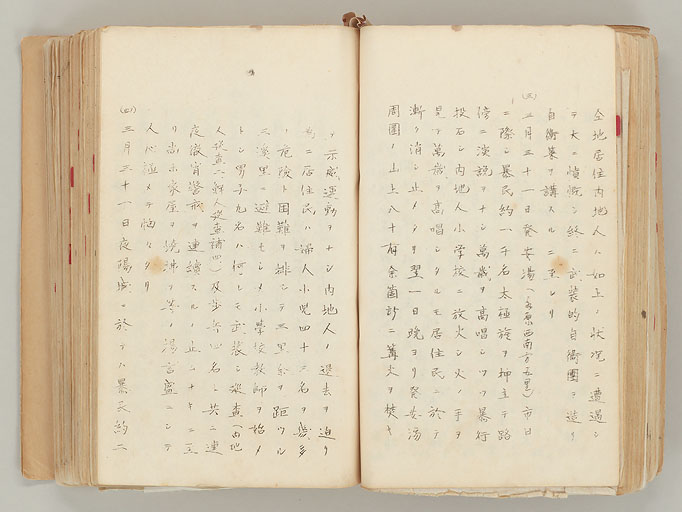 仝地居住内地人ハ如上ノ状況ニ遭遇シ
テ大ニ憤慨シ終ニ武装的自衛團ヲ造リ
自衛策ヲ講スルニ至レリ
(三)三月三十一日発安場(水原西南方五里)市日
ニ際シ暴民約一千名太極旗ヲ押立テ路
傍ニ演説ヲナシ萬歳ヲ高唱シツヽ暴行
投石シ内地人小学校ニ放火シ火ノ手ヲ
見テ萬歳ヲ高唱シタルモ居住民ニ於テ
漸ク消シ止メタリ翌一日晩ヨリ発安場
周圍ノ山上八十有余箇所ニ篝火ヲ焚キ
テ示威運動ヲナシ内地人ノ退去ヲ迫リ
為ニ居住民ハ婦人小児四十三名ヲ幾多
ノ危険ト困難ヲ排シテ三里余ヲ距ツル
三溪里ニ避難セシメ小学校教師ヲ始メ
トシ男子九名ハ何レモ武装シ巡査(内地
人巡査二、鮮人巡査補四)及歩兵心名ト共ニ連
夜徹宵警戒ヲ連續スルノ止ムナキニ至
リ尚ホ家屋ヲ焼沸フ等ノ流言盛ニシテ
人心極メテ恟々タリ
(四)三月三十一日夜陽城ニ於テハ暴民約二